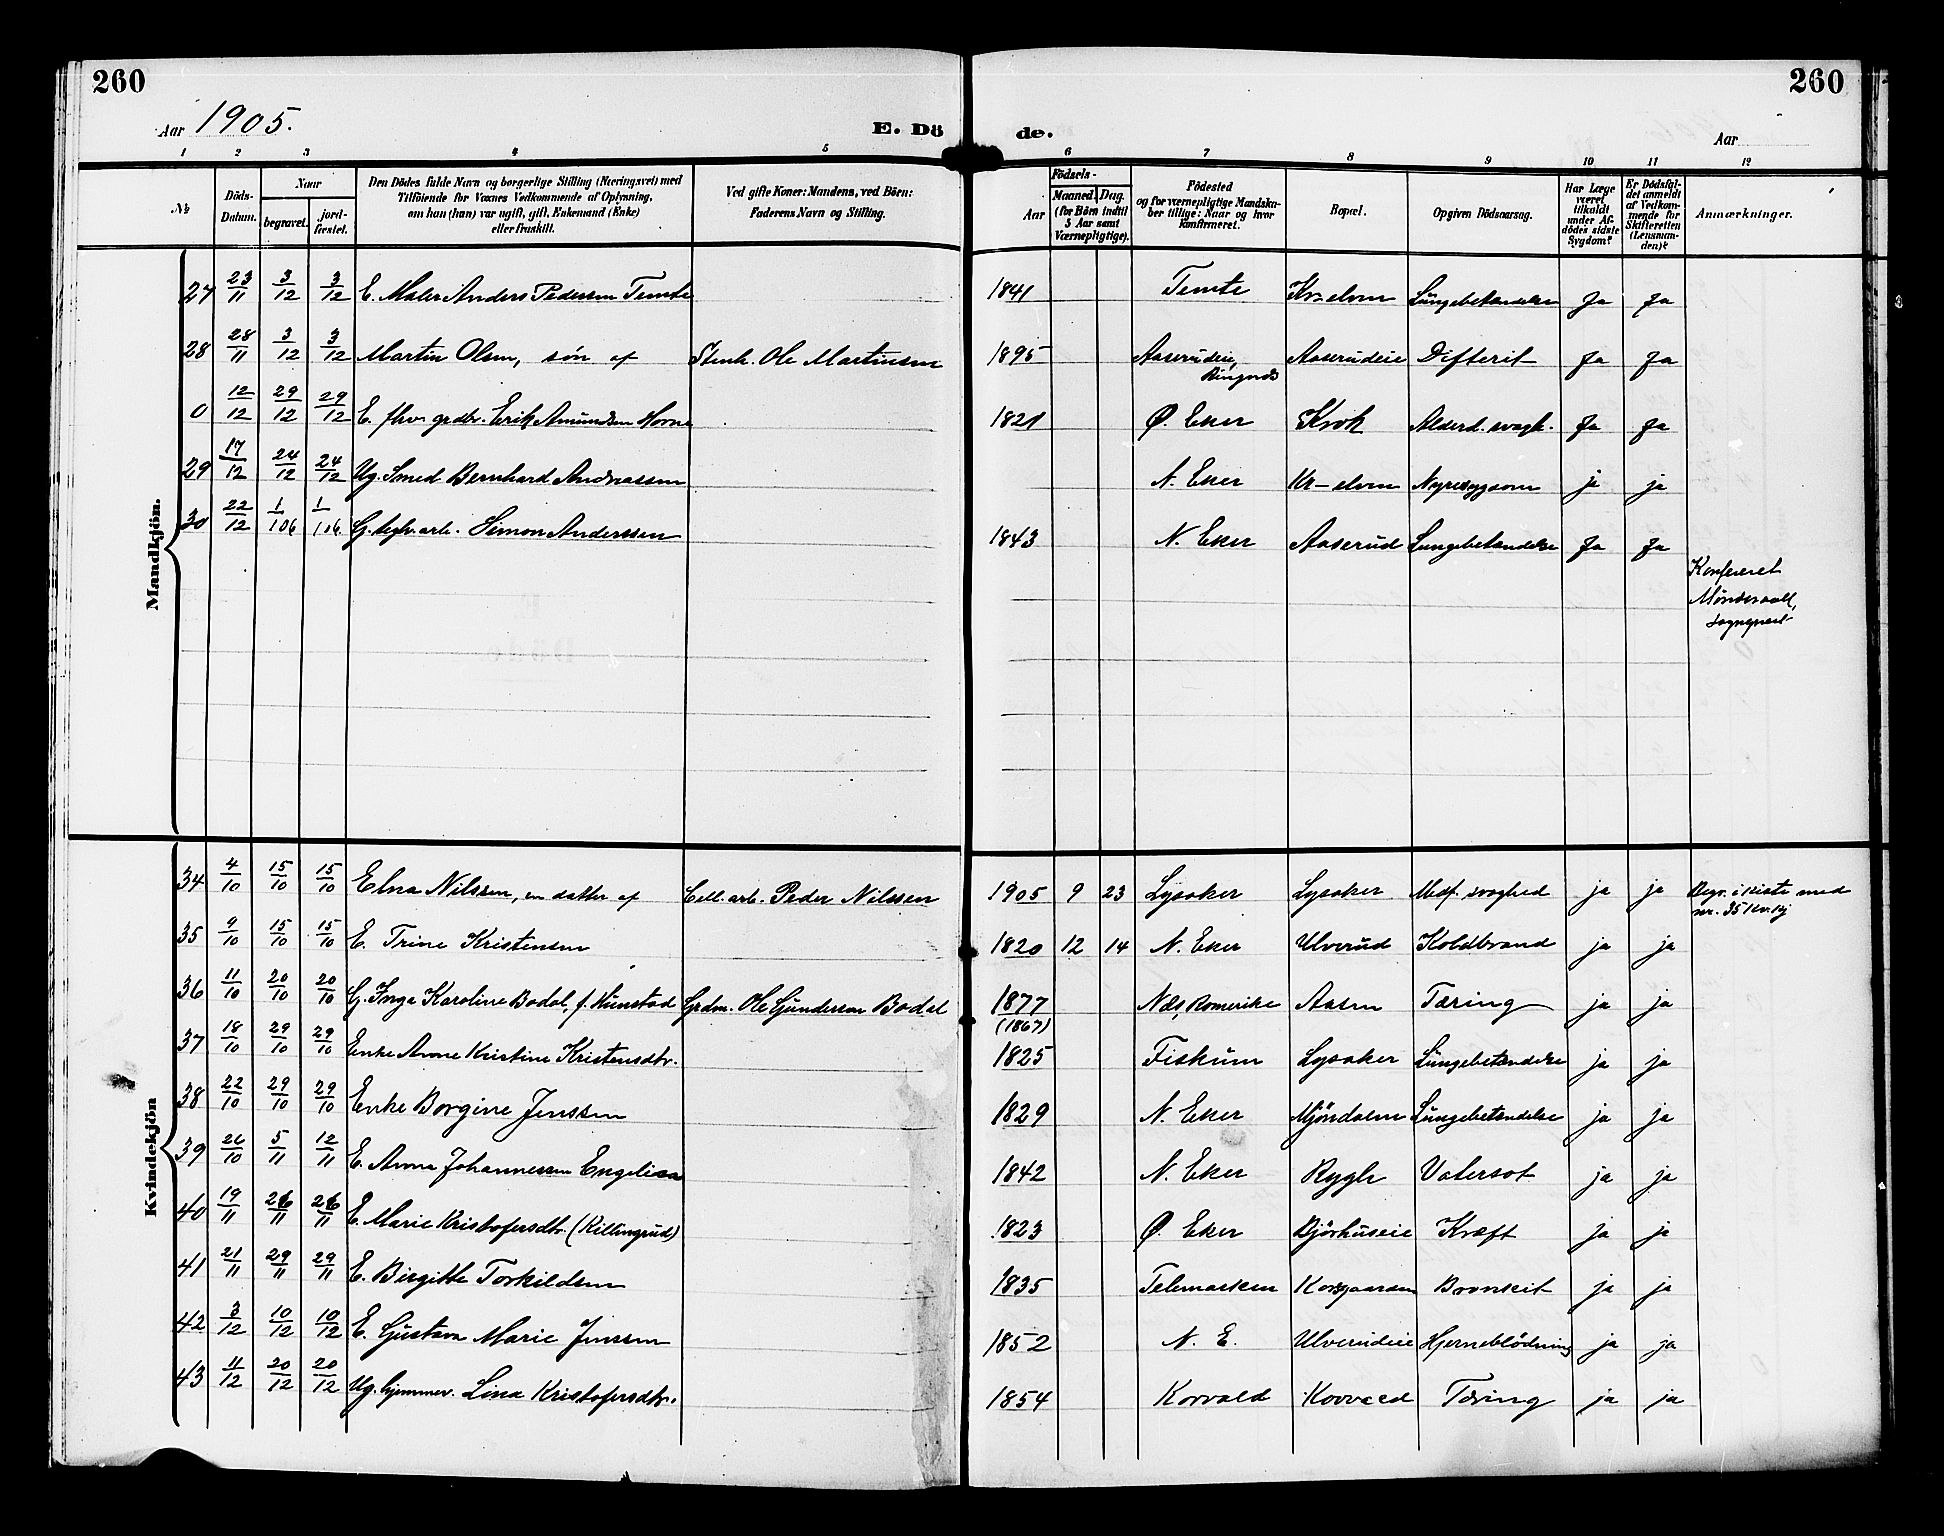 260
260
Aar 1905.
E. Dö
de.
Aar
1 2 3 4 5 6 7 8 9 10 11 12
№
Döds-Datum.
Naar
begravet.
jord-fæstet.
Den Dödes fulde Navn og borgerlige Stilling (Næringsvei) med
Tilföiende for Voxnes Vedkommende af Oplysning,
om han (hun) var ugift, gift, Enkemand (Enke)
eller fraskilt.
Ved gifte Koner: Mandens, ved Börn:
Faderens Navn og Stilling.
Födsels-
Aar
Maaned. Dag.
(for Börn indtil
5 Aar samt
Værnepligtige).
Födested
og for værnepligtige Mandska-
ber tillige: Naar og hvor
konfirmeret.
Bopæl.
Opgiven Dödsaarsag.
Har Læge
været
tilkaldt
under Af-
dödes sidste
Sygdom?
Er Dödsfal-
det anmeldt
af Vedkom-
mende for
Skifteretten
(Lensman-
den)?
Anmærkninger.
Mandkjön.
27 23/11 3/12 3/12 E. Maler Anders Pedersen Temte 1841 Temte Kr-elven Lungebetændelse Ja Ja
28 28/11 3/12 3/12 Martin Olsen, søn af Stenh. Ole Martinsen 1895 Aaserudeie, Aaserudeie Difterit Ja Ja
0 12/12 29/12 29/12 E. fhv. grdbr. Erik Amundsen Horne 1821 Ø. Eker Krok Alderd. svagh. Ja Ja
29 17/12 24/12 24/12 Ug. Smed Bernhard Andreassen N. Eker Kr-elven Nyresygdom ja ja
30 22/12 1/1 06 1/1 06 G. teglv. arb. Simon Anderssen 1843 N. Eker Aaserud Lungebetændelse Ja Ja
Konfereret
sogneprest
Kvindekjön
34 4/10 15/10 15/10 Elna Nilssen, en datter af Cell. arb. Peder Nilssen 1905 9 23 Lysaker Lysaker Medf. svaghed ja ja Begr. i kiste med
nr. 35 Kv.kj
35 9/10 15/10 15/10 E. Trine Kristensen 1820 12 14 N. Eker Ulverud Koldbrand ja ja
36 11/10 20/10 20/10 G. Inga Karoline Bodal, f. Hunstad Grdm. Ole Gundersen Bodal 1877 Næs, Romerike Aasen Tæring ja ja
(1867)
37 18/10 29/10 29/10 Enke Anne Kristine Kristensdtr. 1825 Fiskum Lysaker Lungebetændelse ja ja
38 22/10 29/10 29/10 Enke Borgine Jenssen 1829 N. Eker Mjöndalen Lungebetændelse ja ja
39 26/10 5/11 12/11 E. Anna Johannessen Engelien 1842 N. Eker Rygh Vatersot ja ja
40 19/11 26/11 26/11 E. Marie Kristofersdtr. (Killingrud) 1823 Ø. Eker Bjørhuseie Kræft ja ja
41 21/11 29/11 29/11 E. Birgitte Torkildsen 1835 Telemarken Korsgaarden Bronkit ja ja
42 3/12 10/12 10/12 E. Gustava Marie Jenssen 1852 N. E. Ulverudeie Hjerneblödning ja ja
43 11/12 20/12 20/12 Ug. hjemmev. Lina Kristofersdtr. 1854 Korvald Korvald Tæring ja ja